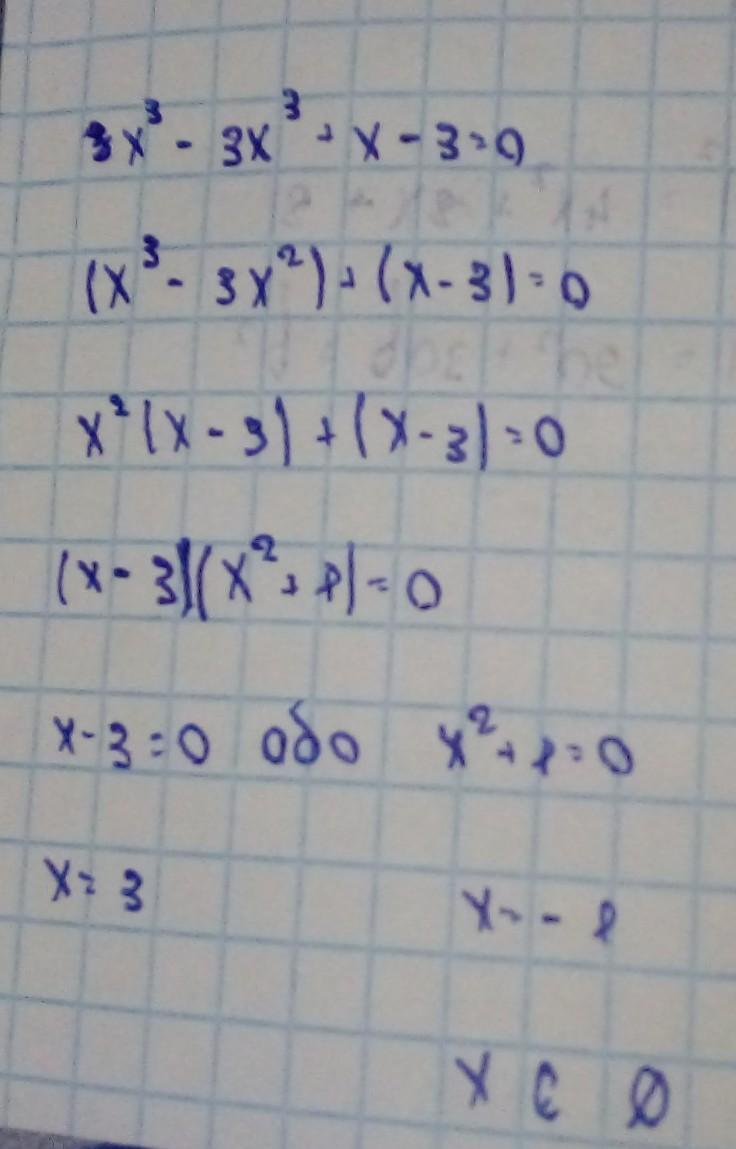 3x³ - 3x³ + x - 3 = 0
(x³ - 3x²) + (x - 3) = 0
x² (x - 3) + (x - 3) = 0
(x - 3)(x² + 1) = 0
x - 3 = 0 або x² + 1 = 0
x = 3 x = - 1
x ∈ ∅